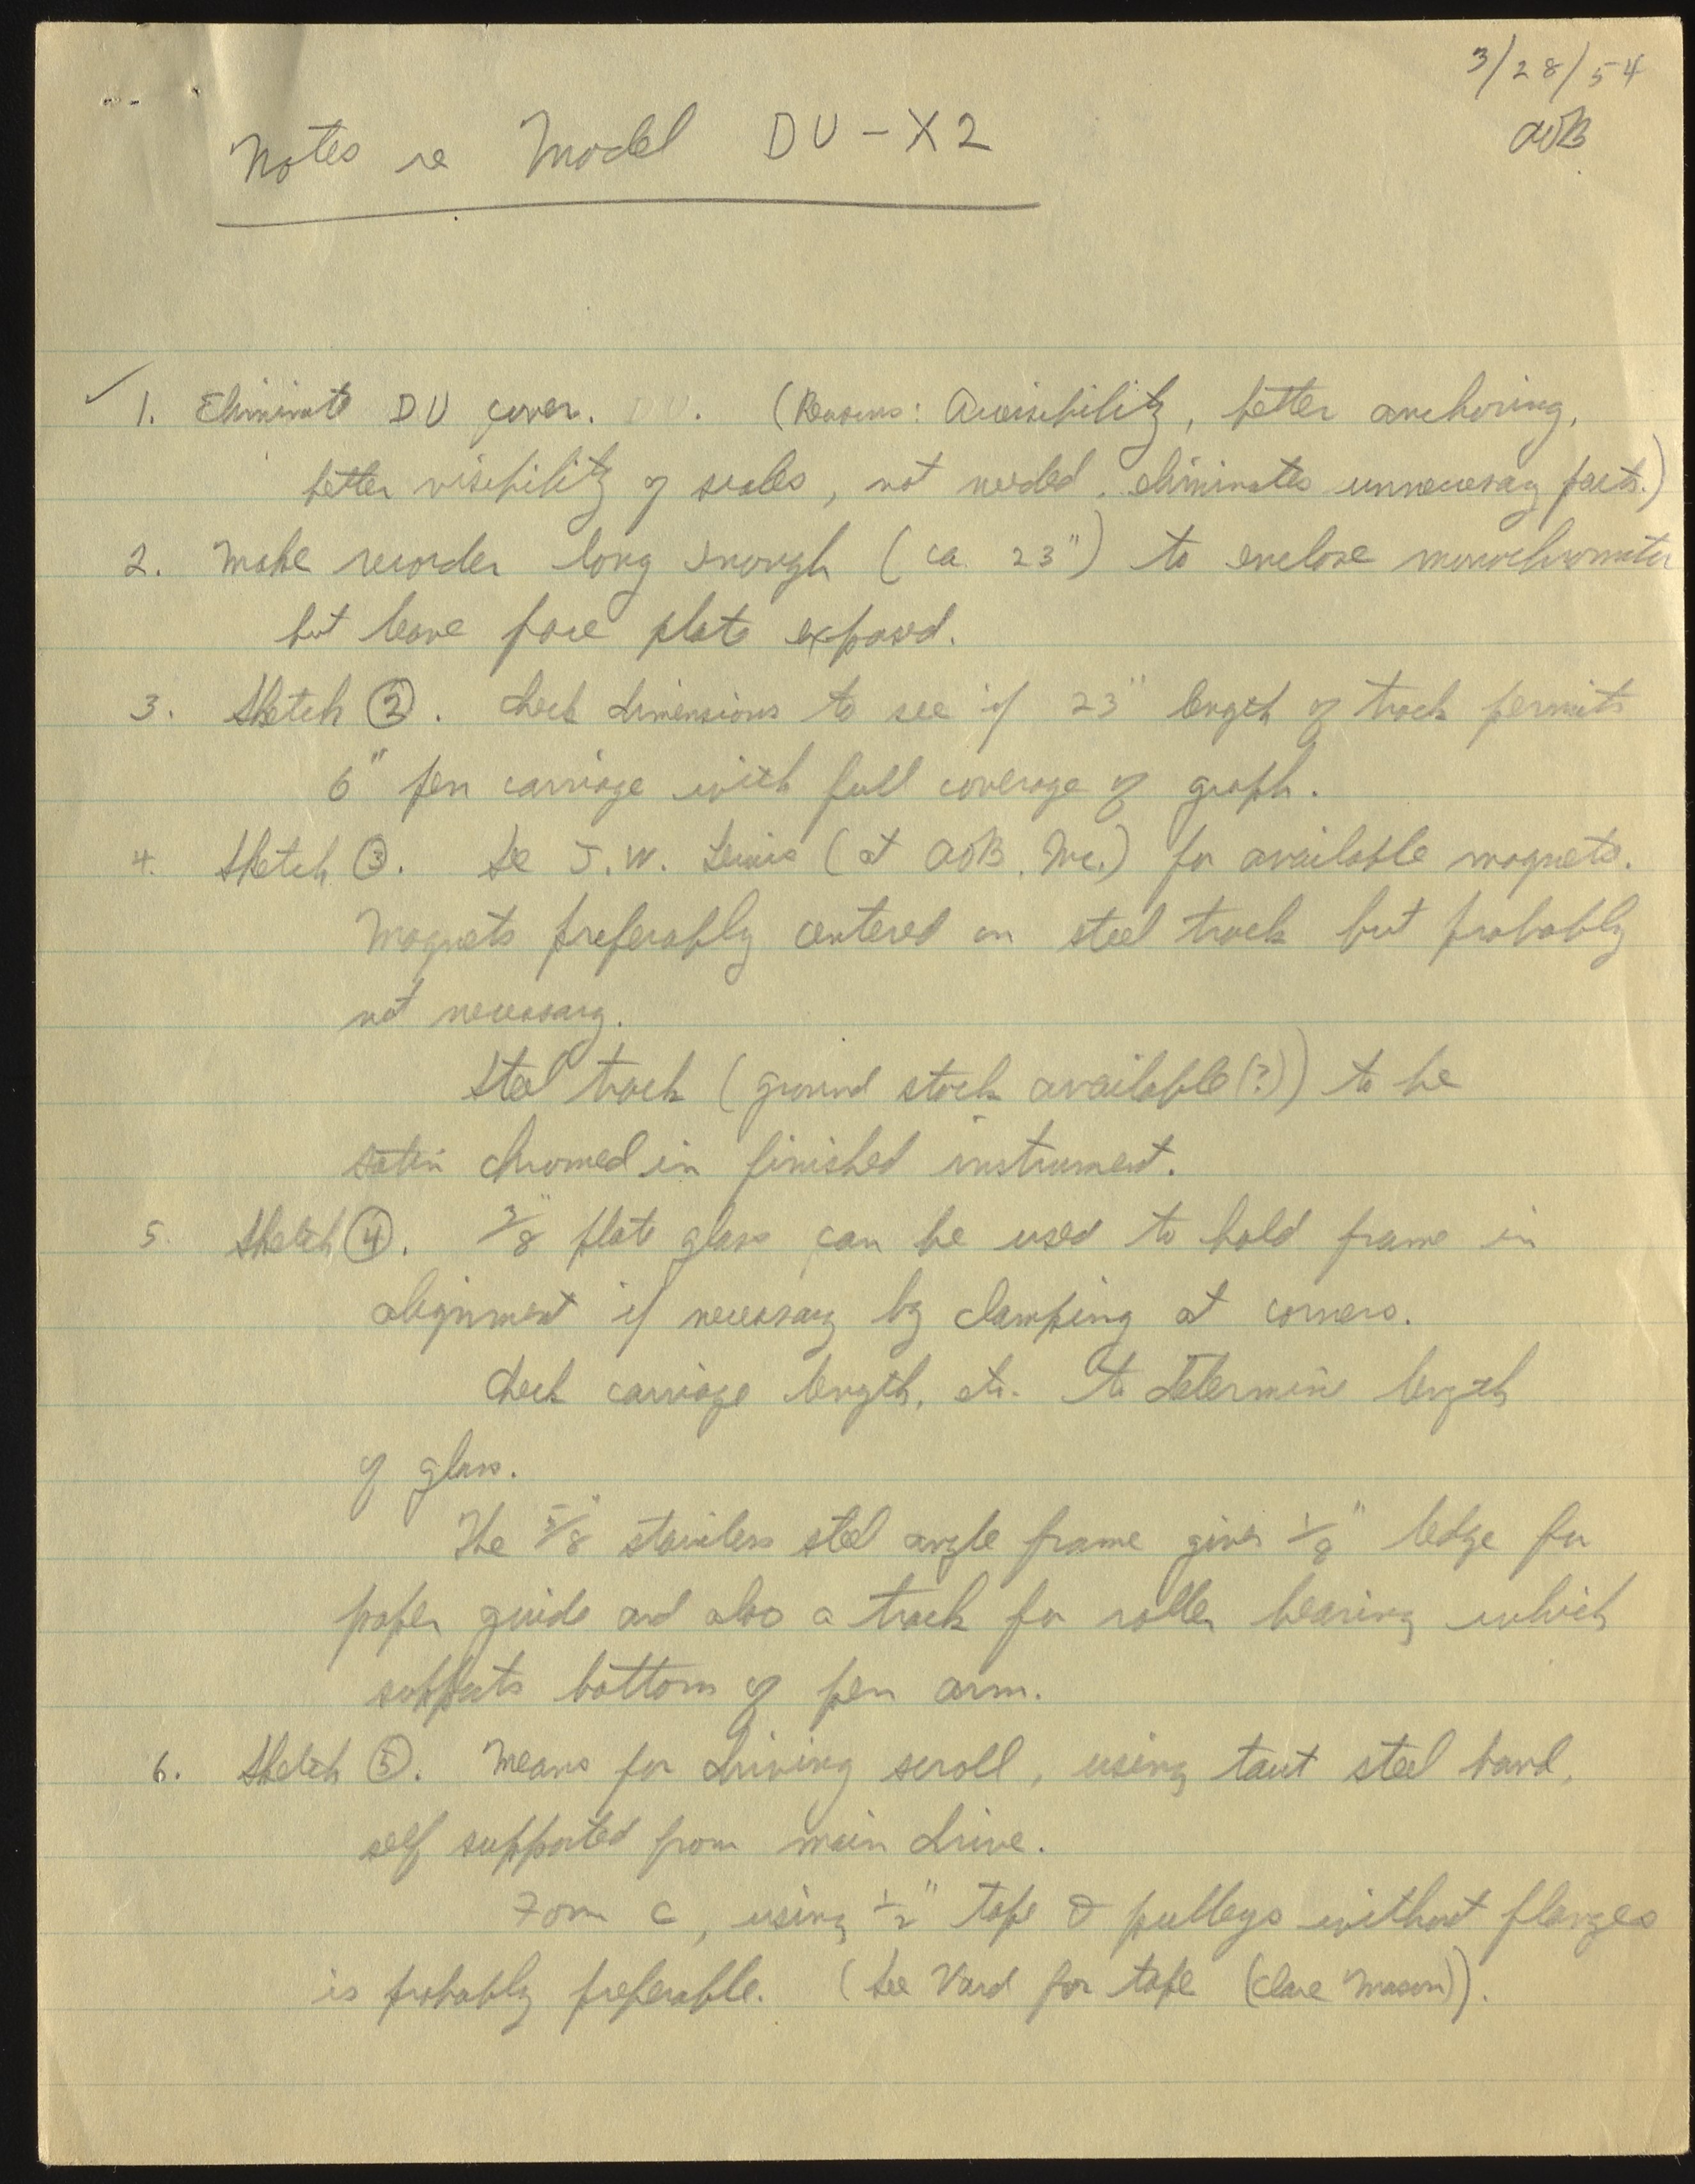 3/28/54
AOB
Notes re Model DU-X2
1. Eliminate DU cover. DU. (Reasons: Accessibility, better anchoring,
better visibility of scales, not needed, eliminates unnecessary parts.)
2. Make recorder long enough (ca. 23") to enclose monochromator
but leave face plate exposed.
3. Sketch ②. Check dimensions to see if 23" length of track permits
6" pen carriage with full coverage of graph.
4. Sketch ③. See J.W. Lewis (at AOB, Inc.) for available magnets.
Magnets preferably centered on steel track but probably
not necessary.
Steel track (ground stock available(?)) to be
satin chromed in finished instrument.
5. Sketch ④. 3/8" plate glass can be used to hold frame in
alignment if necessary by clamping at corners.
Check carriage length, etc. to determine length
of glass.
The 5/8" stainless steel angle frame gives 1/8" ledge for
paper guide and also a track for roller bearing which
supports bottom of pen arm.
6. Sketch ⑤. Means for driving scroll, using taut steel band,
self supported from main drive.
Form C, using 1/2" tape & pulleys without flanges
is probably preferable. (See Vard for tape (Clare Mason)).